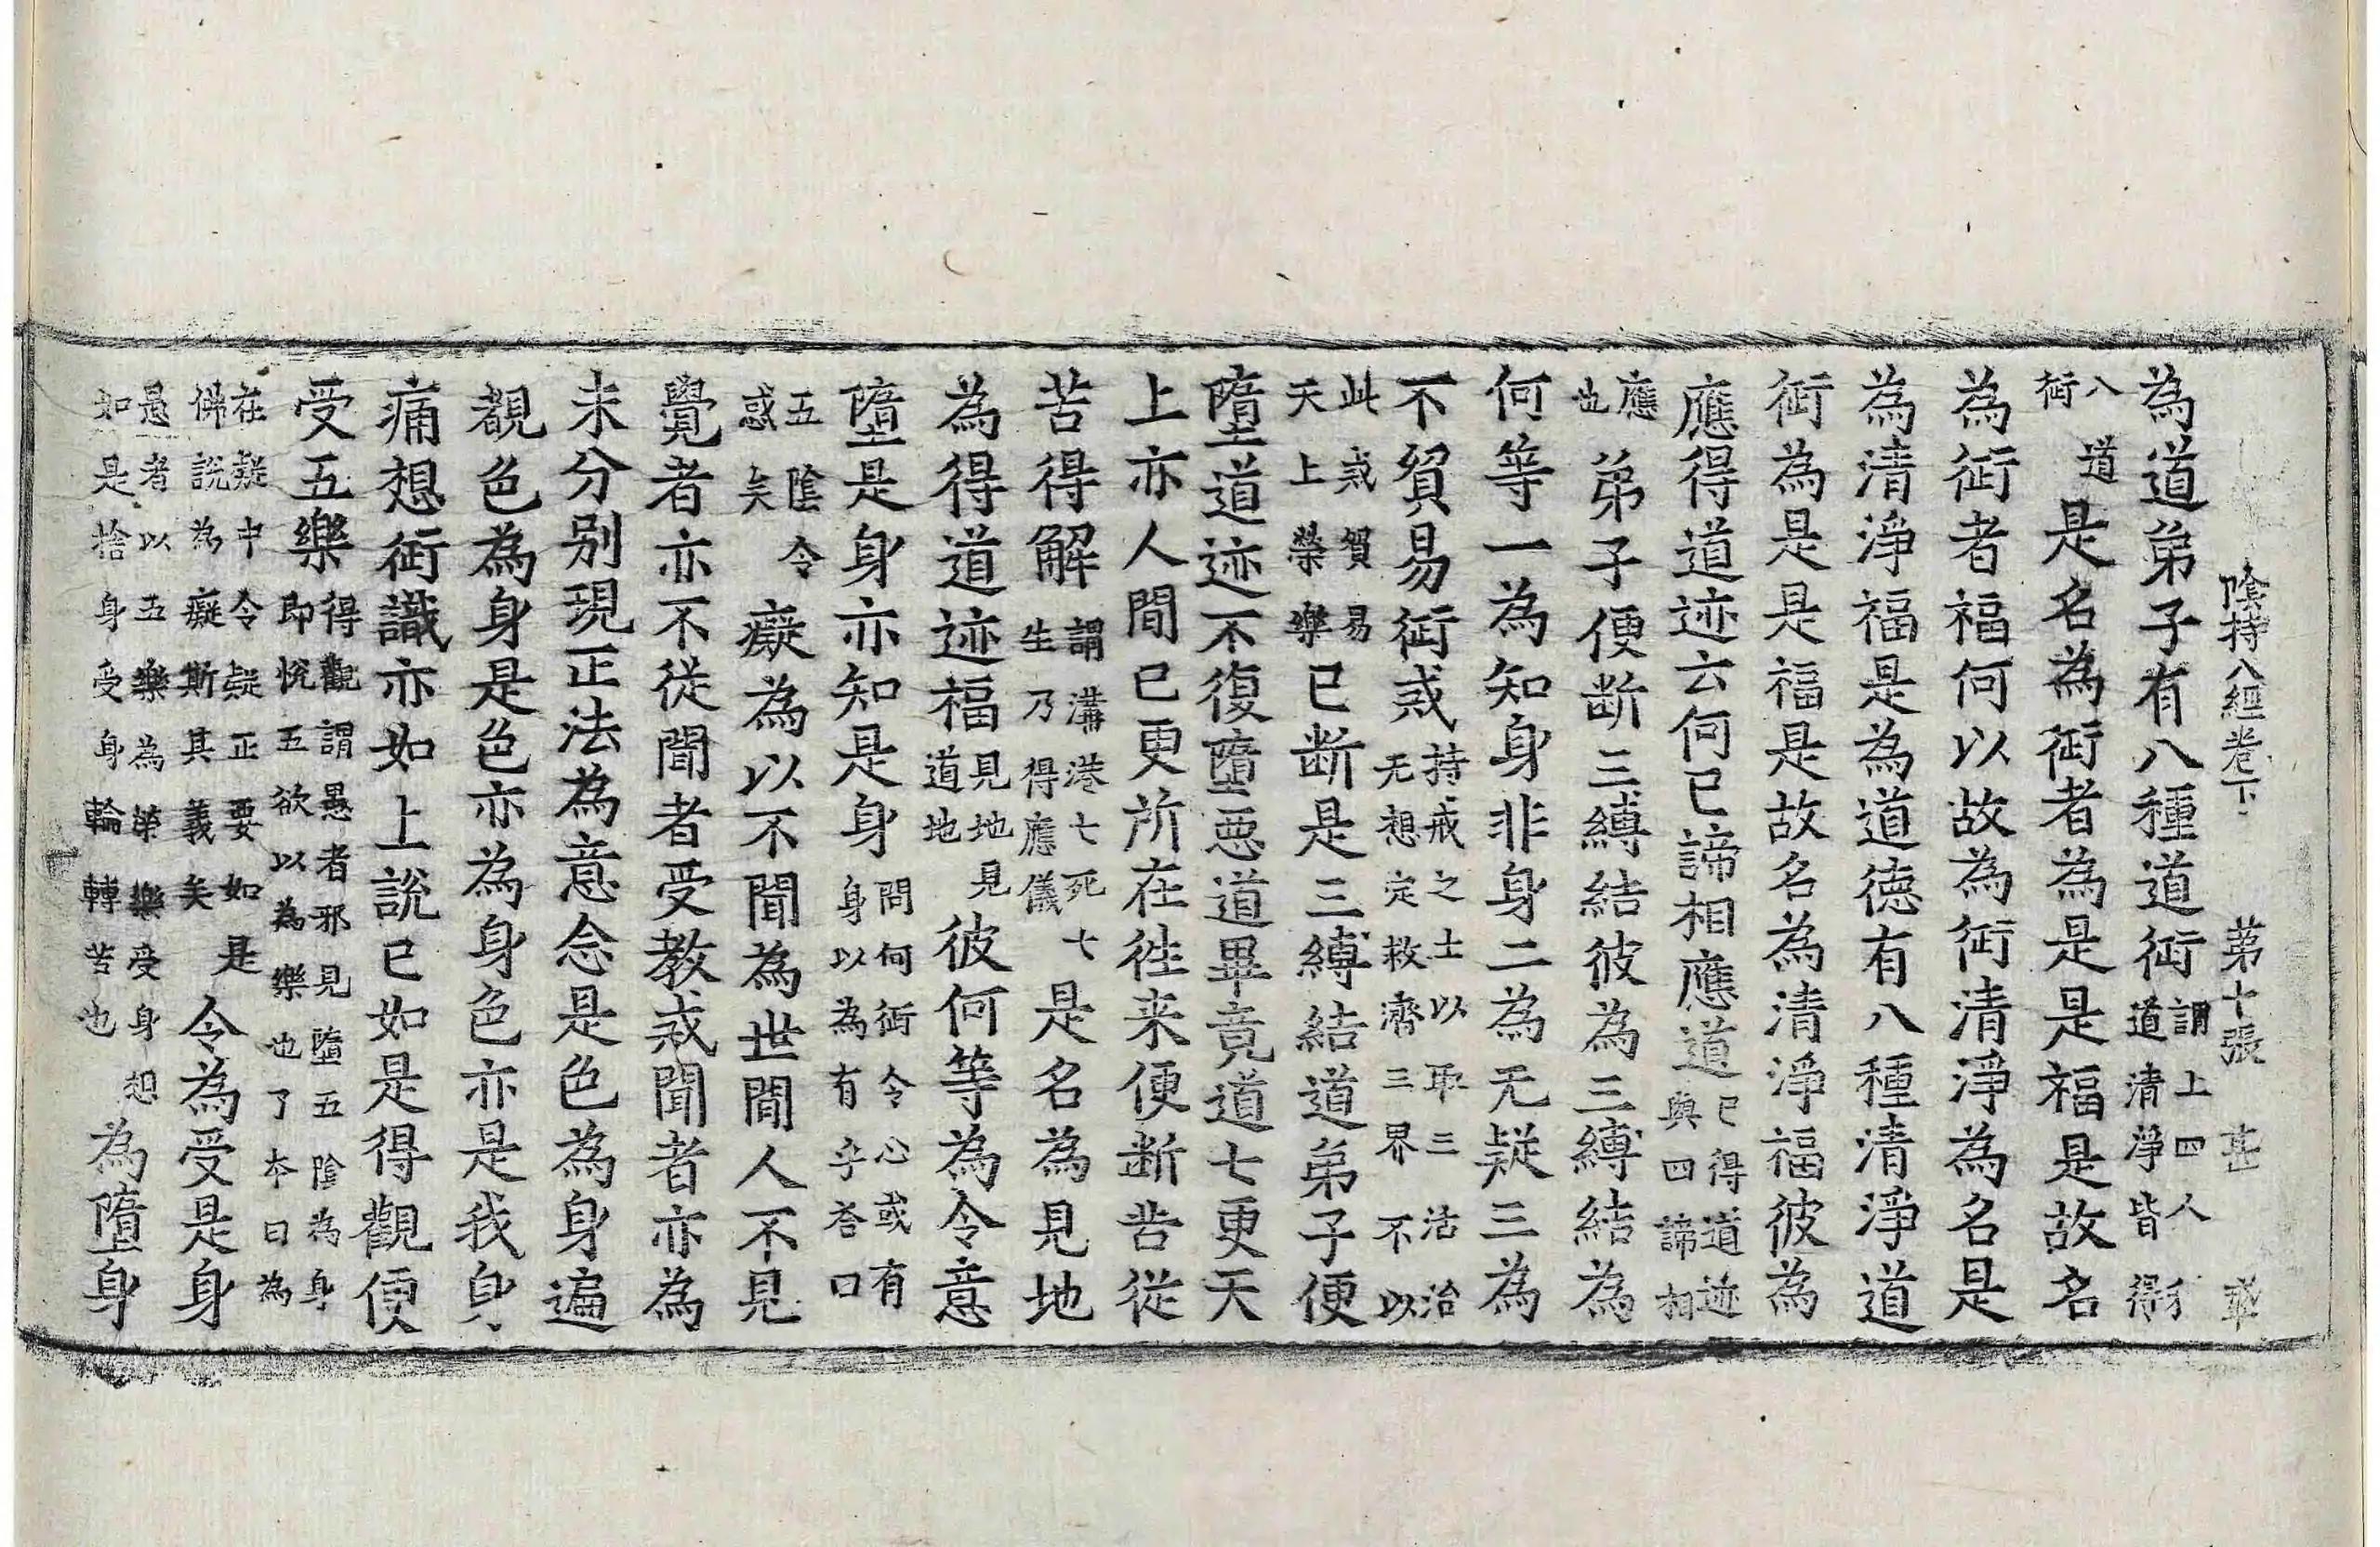 陰持入經卷下　第十張　甚
為道弟子有八種道行謂上四人行道清淨皆得
八道行是名為行者為是是福是故名
為行者福何以故為行清淨為名是
為清淨福是為道德有八種清淨道
行為是是福是故名為清淨福彼為
應得道迹云何已諦相應道已得道迹與四諦相
應也弟子便断三縛結彼為三縛結為
何等一為知身非身二為无疑三為
不貿易行戒持戒之士以耶三活治无想定救濟三界不以
此戒貿易天上榮樂已断是三縛結道弟子便
墮道迹不復墮惡道畢竟道七更天
上亦人間已更所在往来便断苦從
苦得解謂溝港七死七生乃得應儀是名為見地
為得道迹福見地見道地彼何等為令意
墮是身亦知是身問何行令心或有身以為有乎荅曰
五陰令惑矣癡為以不聞為世間人不見
覺者亦不從聞者受教戒聞者亦為
未分别現正法為意念是色為身遍
覩色為身是色亦為身色亦是我身
痛想行識亦如上說已如是得觀便
受五樂得觀謂愚者邪見墮五陰為身即悅五欲以為樂也了本曰為
在癡中令疑正要如是佛說為癡斯其義矣令為受是身
是者以五樂為榮樂受身想如是捨身受身輪轉苦也為墮身